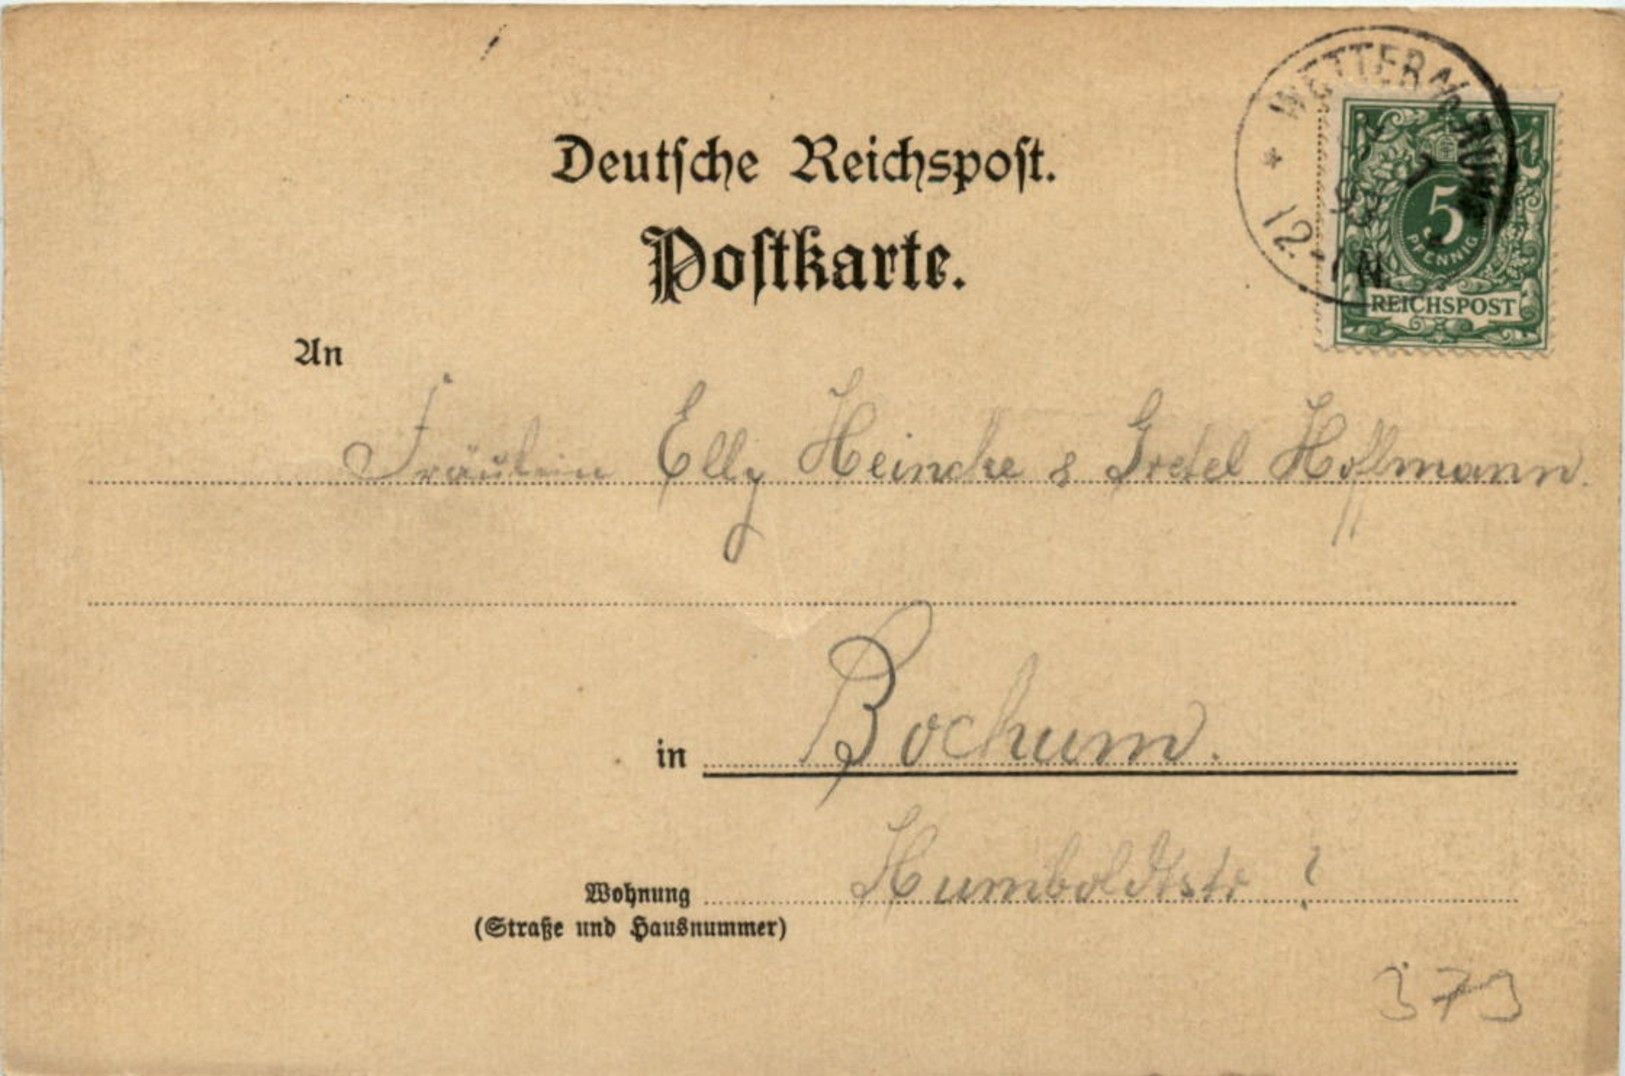 Deutsche Reichspost.
Postkarte.
WETTER
12-1N.
5
PFENNIG
REICHSPOST
An
Fräulein Elly Heincke & Gretel Hoffmann.
in Bochum.
Wohnung Humboldtstr ?
(Straße und Hausnummer)
379